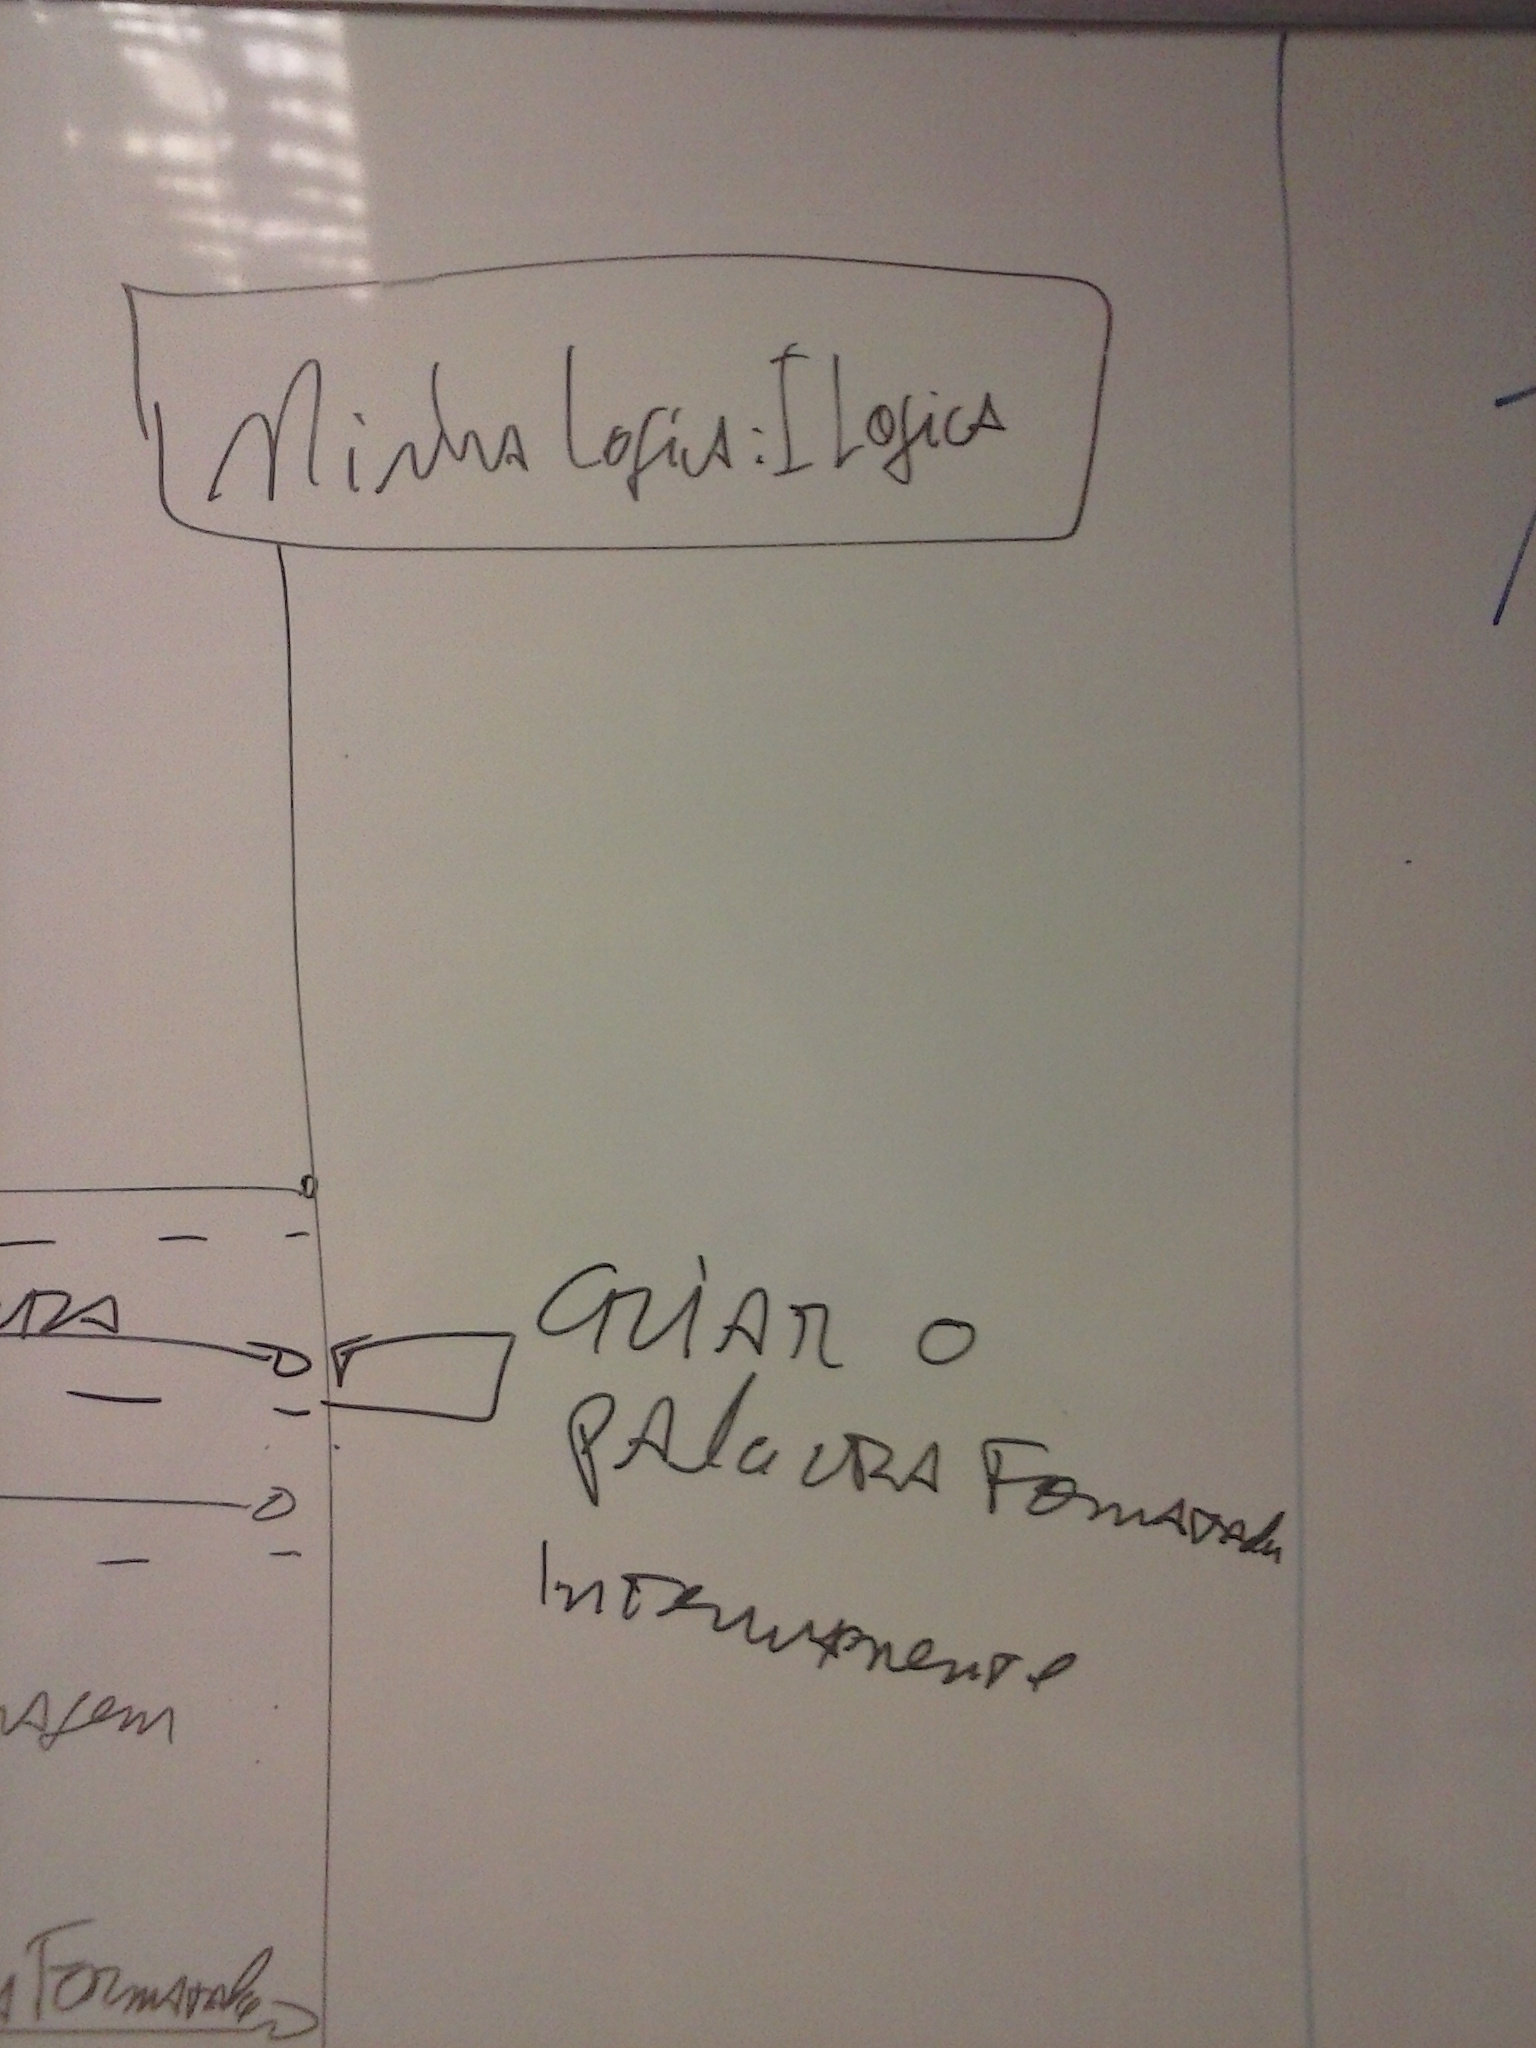 Minha Logica: ILogica
CRIAR O
PALAVRA Formatada
Internamente
Formatada